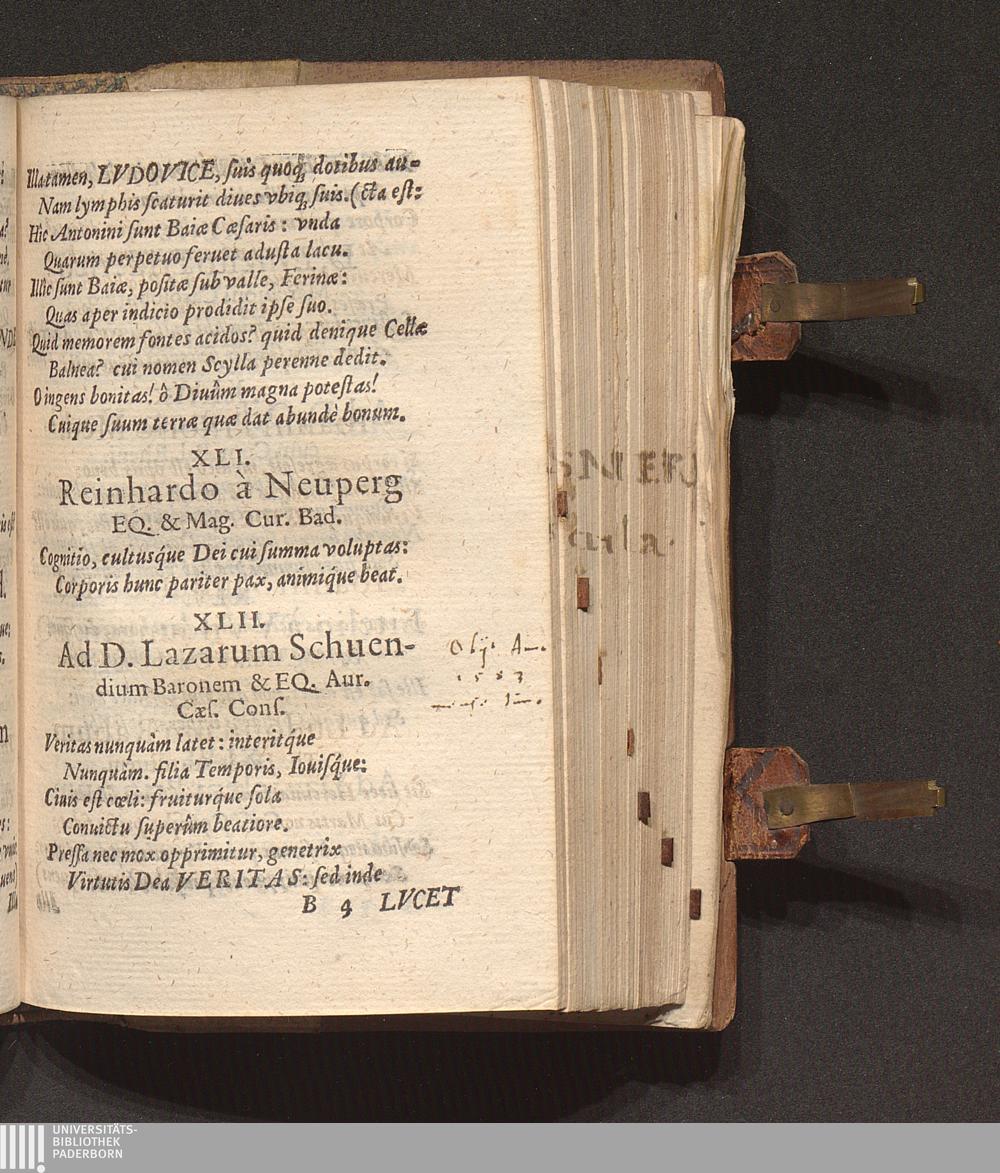 Illa tamen, LVDOVICE, suis quoq; dotibus au-
Nam lymphis scaturit diues vbiq; suis. (cta est:
Hîc Antonini sunt Baiæ Cæsaris: vnda
Quarum perpetuo feruet adusta lacu.
Illîc sunt Baiæ, positæ sub valle, Ferinæ:
Quas aper indicio prodidit ipse suo.
Quid memorem fontes acidos? quid denique Cellæ
Balnea? cui nomen Scylla perenne dedit.
O ingens bonitas! ô Diuûm magna potestas!
Cuique suum terræ quæ dat abundè bonum.
XLI.
Reinhardo à Neuperg
EQ. & Mag. Cur. Bad.
Cognitio, cultusq́ue Dei cui summa voluptas:
Corporis hunc pariter pax, animiq́ue beat.
XLII.
Ad D. Lazarum Schuen-
dium Baronem & EQ. Aur.
Cæs. Cons.
Obijt A
1583
Veritas nunquàm latet: interitq́ue
Nunquàm. filia Temporis, Iouisq́ue:
Ciuis est cœli: fruiturq́ue sola
Conuictu superûm beatiore.
Pressa nec mox opprimitur, genetrix
Virtutis Dea VERITAS: sed inde
B 4 LVCET
UNIVERSITÄTS-
BIBLIOTHEK
PADERBORN